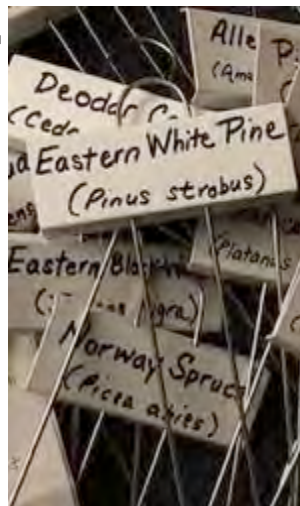 Alle
(Ama
Deodar
(Cedr
Eastern White Pine
(Pinus strobus)
(Platanus
Eastern Black
Norway Spruce
(Picea abies)